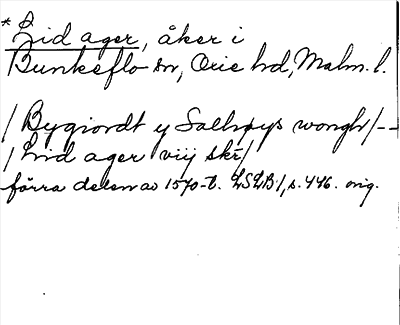 * Lid ager, åker i
Bunkeflo sn, Oxie hd, Malm. l.
/ Bygiordt y Salhøys wongh/--
/ Lid ager viij skr/
förra delen av 1570-t. LSLB:1, s. 446. orig.